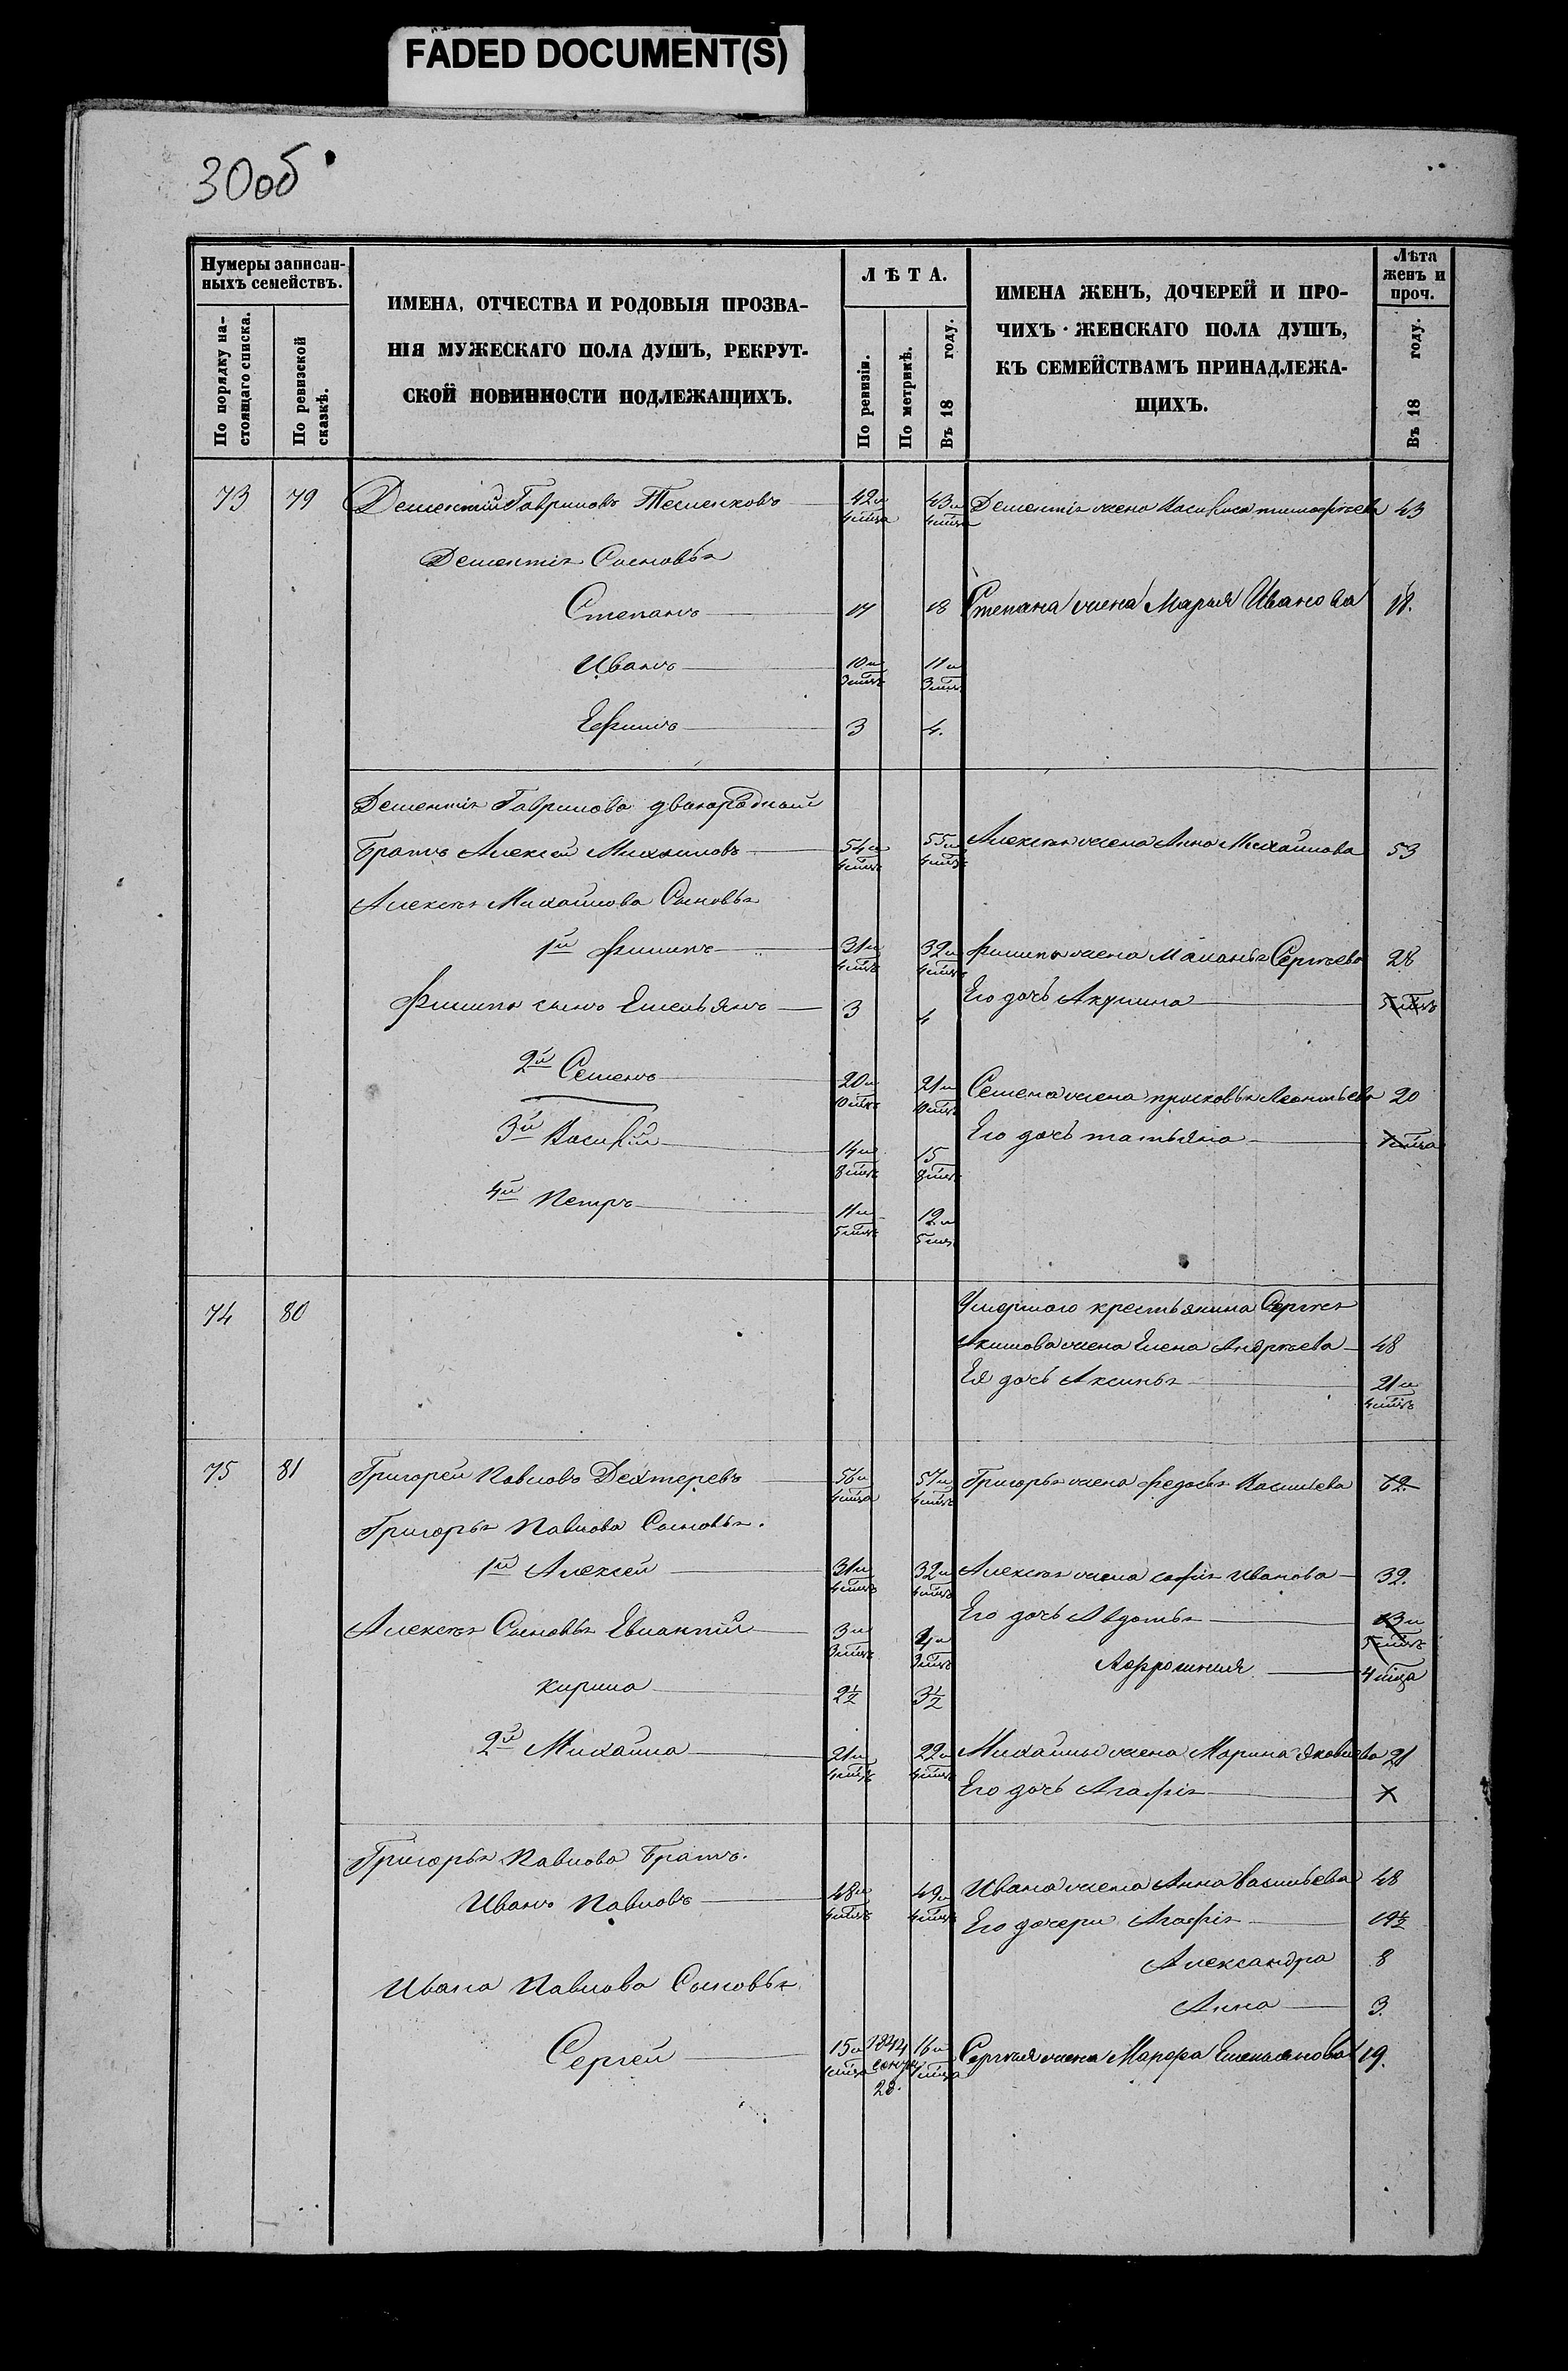 FADED DOCUMENT(S)
30об
Нумеры записан-
ныхъ семействъ.
По порядку на-
стоящаго списка.
По ревизской
сказкѣ.
ИМЕНА, ОТЧЕСТВА И РОДОВЫЯ ПРОЗВА-
НІЯ МУЖЕСКАГО ПОЛА ДУШЪ, РЕКРУТ-
СКОЙ ПОВИННОСТИ ПОДЛЕЖАЩИХЪ.
ЛѢТА.
По ревизіи.
По метрикѣ.
Въ 18 году.
ИМЕНА ЖЕНЪ, ДОЧЕРЕЙ И ПРО-
ЧИХЪ ЖЕНСКАГО ПОЛА ДУШЪ,
КЪ СЕМЕЙСТВАМЪ ПРИНАДЛЕЖА-
ЩИХЪ.
Лѣта
женъ и
проч.
Въ 18 году.
73 79 Дементий Гавриловъ 42 и 4 мца 43 и 4 мца Дементія жена Василиса тимофѣева 43
Дементія Сыновья
Степанъ 17 18 Степана жена Марья Иванова 18.
Иванъ 10 и 3 мцъ 11 и 3 мцъ
Ефимъ 3 4.
Дементія Гаврилова двоюродный
братъ Алексей Михаиловъ 54 и 4 мцъ 55 и 4 мцъ Алексея жена Анна Михайлова 53
Алексея Михайлова Сыновья
1й филипъ 31 и 4 мцъ 32 и 4 мцъ филипа жена Маланья Сергѣева 28
Филипа сынъ Емельянъ 3 4 Его дочь Акулина 5 мцъ
2й Семенъ 20 и 10 мцъ 21 и 10 мцъ Семена жена прасковья Леонтьева 20
3й Василій 14 и 8 мцъ 15 8 мцъ Его дочь татьяна
4й Петръ 11 и 5 мцъ 12 и 5 мцъ
74 80 Умершаго крестьянина Сергея
Акимова жена Елена Андрѣева 48
Ея дочь Аксинья 21 и 4 мцъ
75 81 Григорей Павловъ Дехтеревъ 56 и 4 мца 57 и 4 мцъ Григорья жена федосья Васильева 62
Григорья Павлова Сыновья.
1й Алексей 31 и 4 мцъ 32 и 4 мцъ Алексея жена софія Иванова 32.
Алексея Сыновья Евлампій 3 и 3 мцъ 4 и 3 мцъ Его дочь Авдотья 13 и 5 мцъ
Афросиния 4 мца
кирила 2½ 3½
2й Михаила 21 и 4 мцъ 22 и 4 мцъ Михаилы жена Марина Яковлева 21
Его дочь Агафія
Григорья Павлова братъ.
Иванъ Павловъ 48 и 4 мцъ 49 и 4 мцъ Ивана жена Анна васильева 48
Его дочери Агафія 19½
Александра 8
Ивана Павлова Сыновья
Анна 3.
Сергей 15 и 4 мца 1844 сентр 28. 16 и 4 мца Сергѣя жена Марфа Емельянова 19.